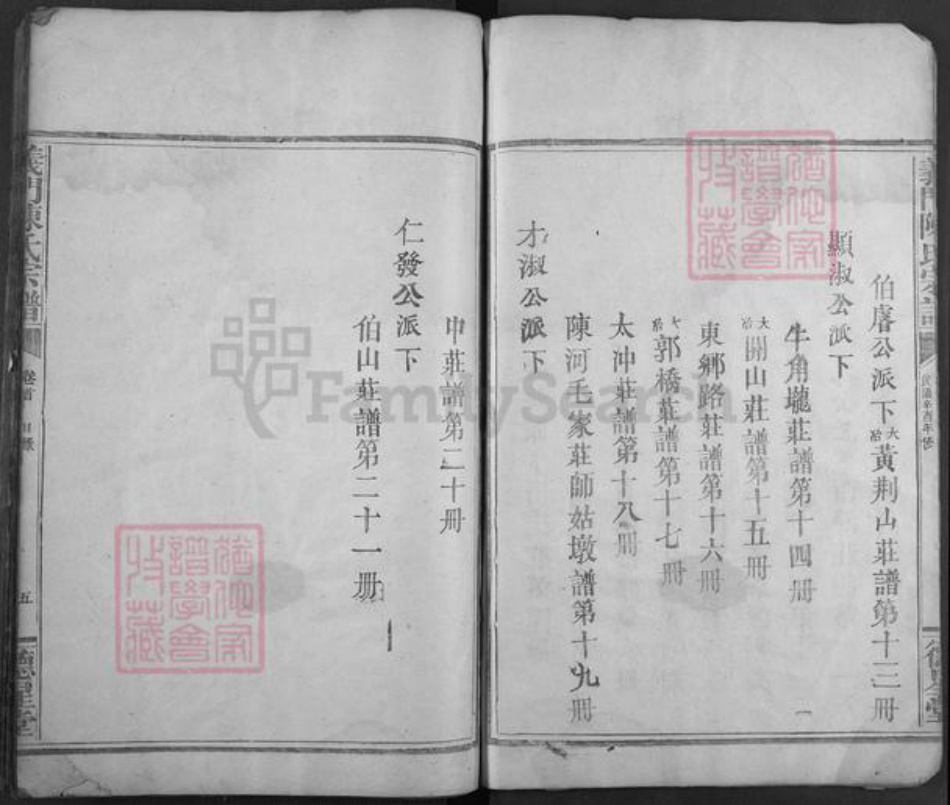 義門陳氏宗譜
民國辛酉年修
伯㢙公派下大冶黃荆山莊譜第十三冊
顯淑公派下
牛角壠莊譜第十四冊
大冶開山莊譜第十五冊
東鄉路莊譜第十六冊
大冶郭橋莊譜第十七冊
太沖莊譜第十八冊
陳河毛家莊師姑墩譜第十九冊
才淑公派下
申莊譜第二十冊
仁發公派下
伯山莊譜第二十一冊
義門陳氏宗譜
卷首
五
德星堂
德星堂
FamilySearch